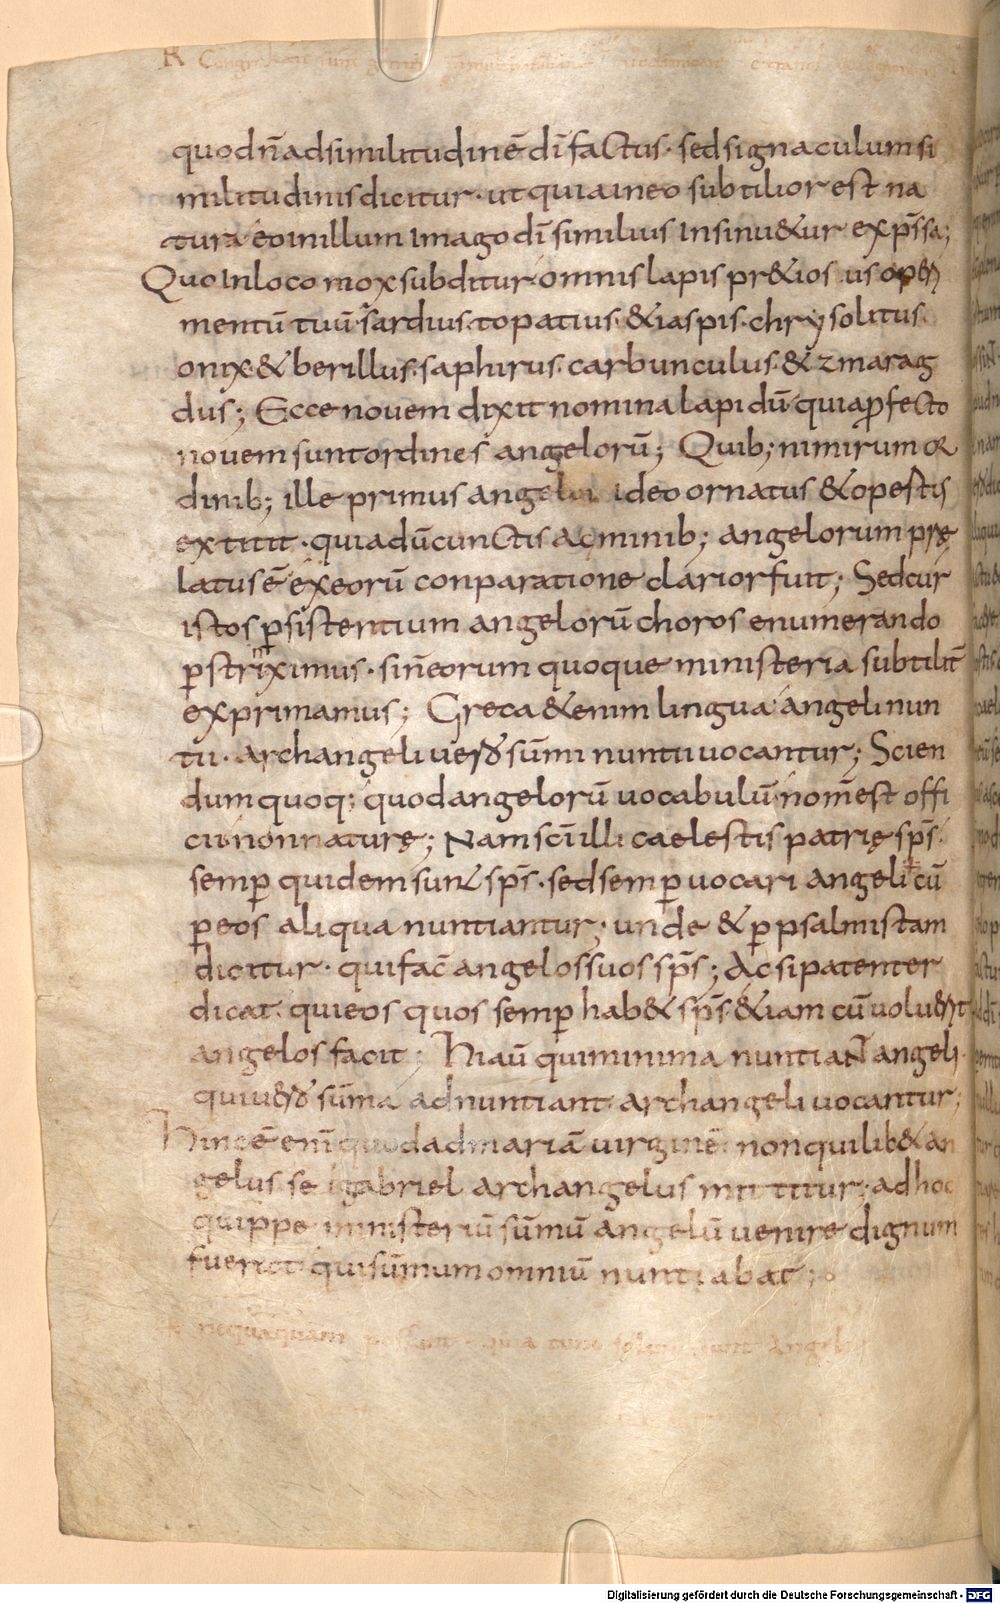 R Congregati sunt
quod n̄ ad similitudinē dī factus · sed signaculum si
militudinis dicitur · ut quia in eo subtilior est na
tura eo in illum imago dī similius insinu&ur exp̄ssa;
Quo in loco mox subditur omnis lapis pr&iosus oper
mentū tuū · sardius · topatius · & iaspis · chrysolitus ·
onix · & berillus · saphirus · carbunculus · & zmarag
dus; Ecce novem dixit nomina lapidū quia ꝓfecto
novem sunt ordines angelorū; Quib; nimirum or
dinib; ille primus angelus ideo ornatus & opertus
extitit · quia dū cunctis agminib; angelorum prę
latus ē ex eorū conparatione clarior fuit; Sed cur
istos ꝑsistentium angelorū choros enumerando
ꝑstrinximus · si n̄ eorum quoque ministeria subtilit̄
exprimamus; Greca &enim lingua angeli nun
tii · archangeli uero sūmi nuntii uocantur; Scien
dum quoq; quod angelorū uocabulū nom̄ est offi
cii non naturę; Nam sc̄i illi caelestis patrię sp̄s ·
semꝑ quidem sunt sp̄s · sed semꝑ uocari angeli cū
ꝑ eos aliqua nuntiantur; unde & ꝑ psalmistam
dicitur · qui fac̄ angelos suos sp̄s; Ac si patenter
dicat · qui eos quos semꝑ hab& sp̄s &iam cū voluerit
angelos facit; Hi aū qui minima nuntiant angeli ·
qui uero sūma adnuntiant archangeli uocantur;
Hinc ē enī quod ad mariā virginē · non quilib& an
gelus · se gabriel archangelus mittitur; ad hoc
quippe ministeriū sūmū angelū uenire dignum
fuerat qui sūmum omniū nuntiabat;
nequaquam possunt · quia tunc solum sunt Angeli
Digitalisierung gefördert durch die Deutsche Forschungsgemeinschaft - DFG